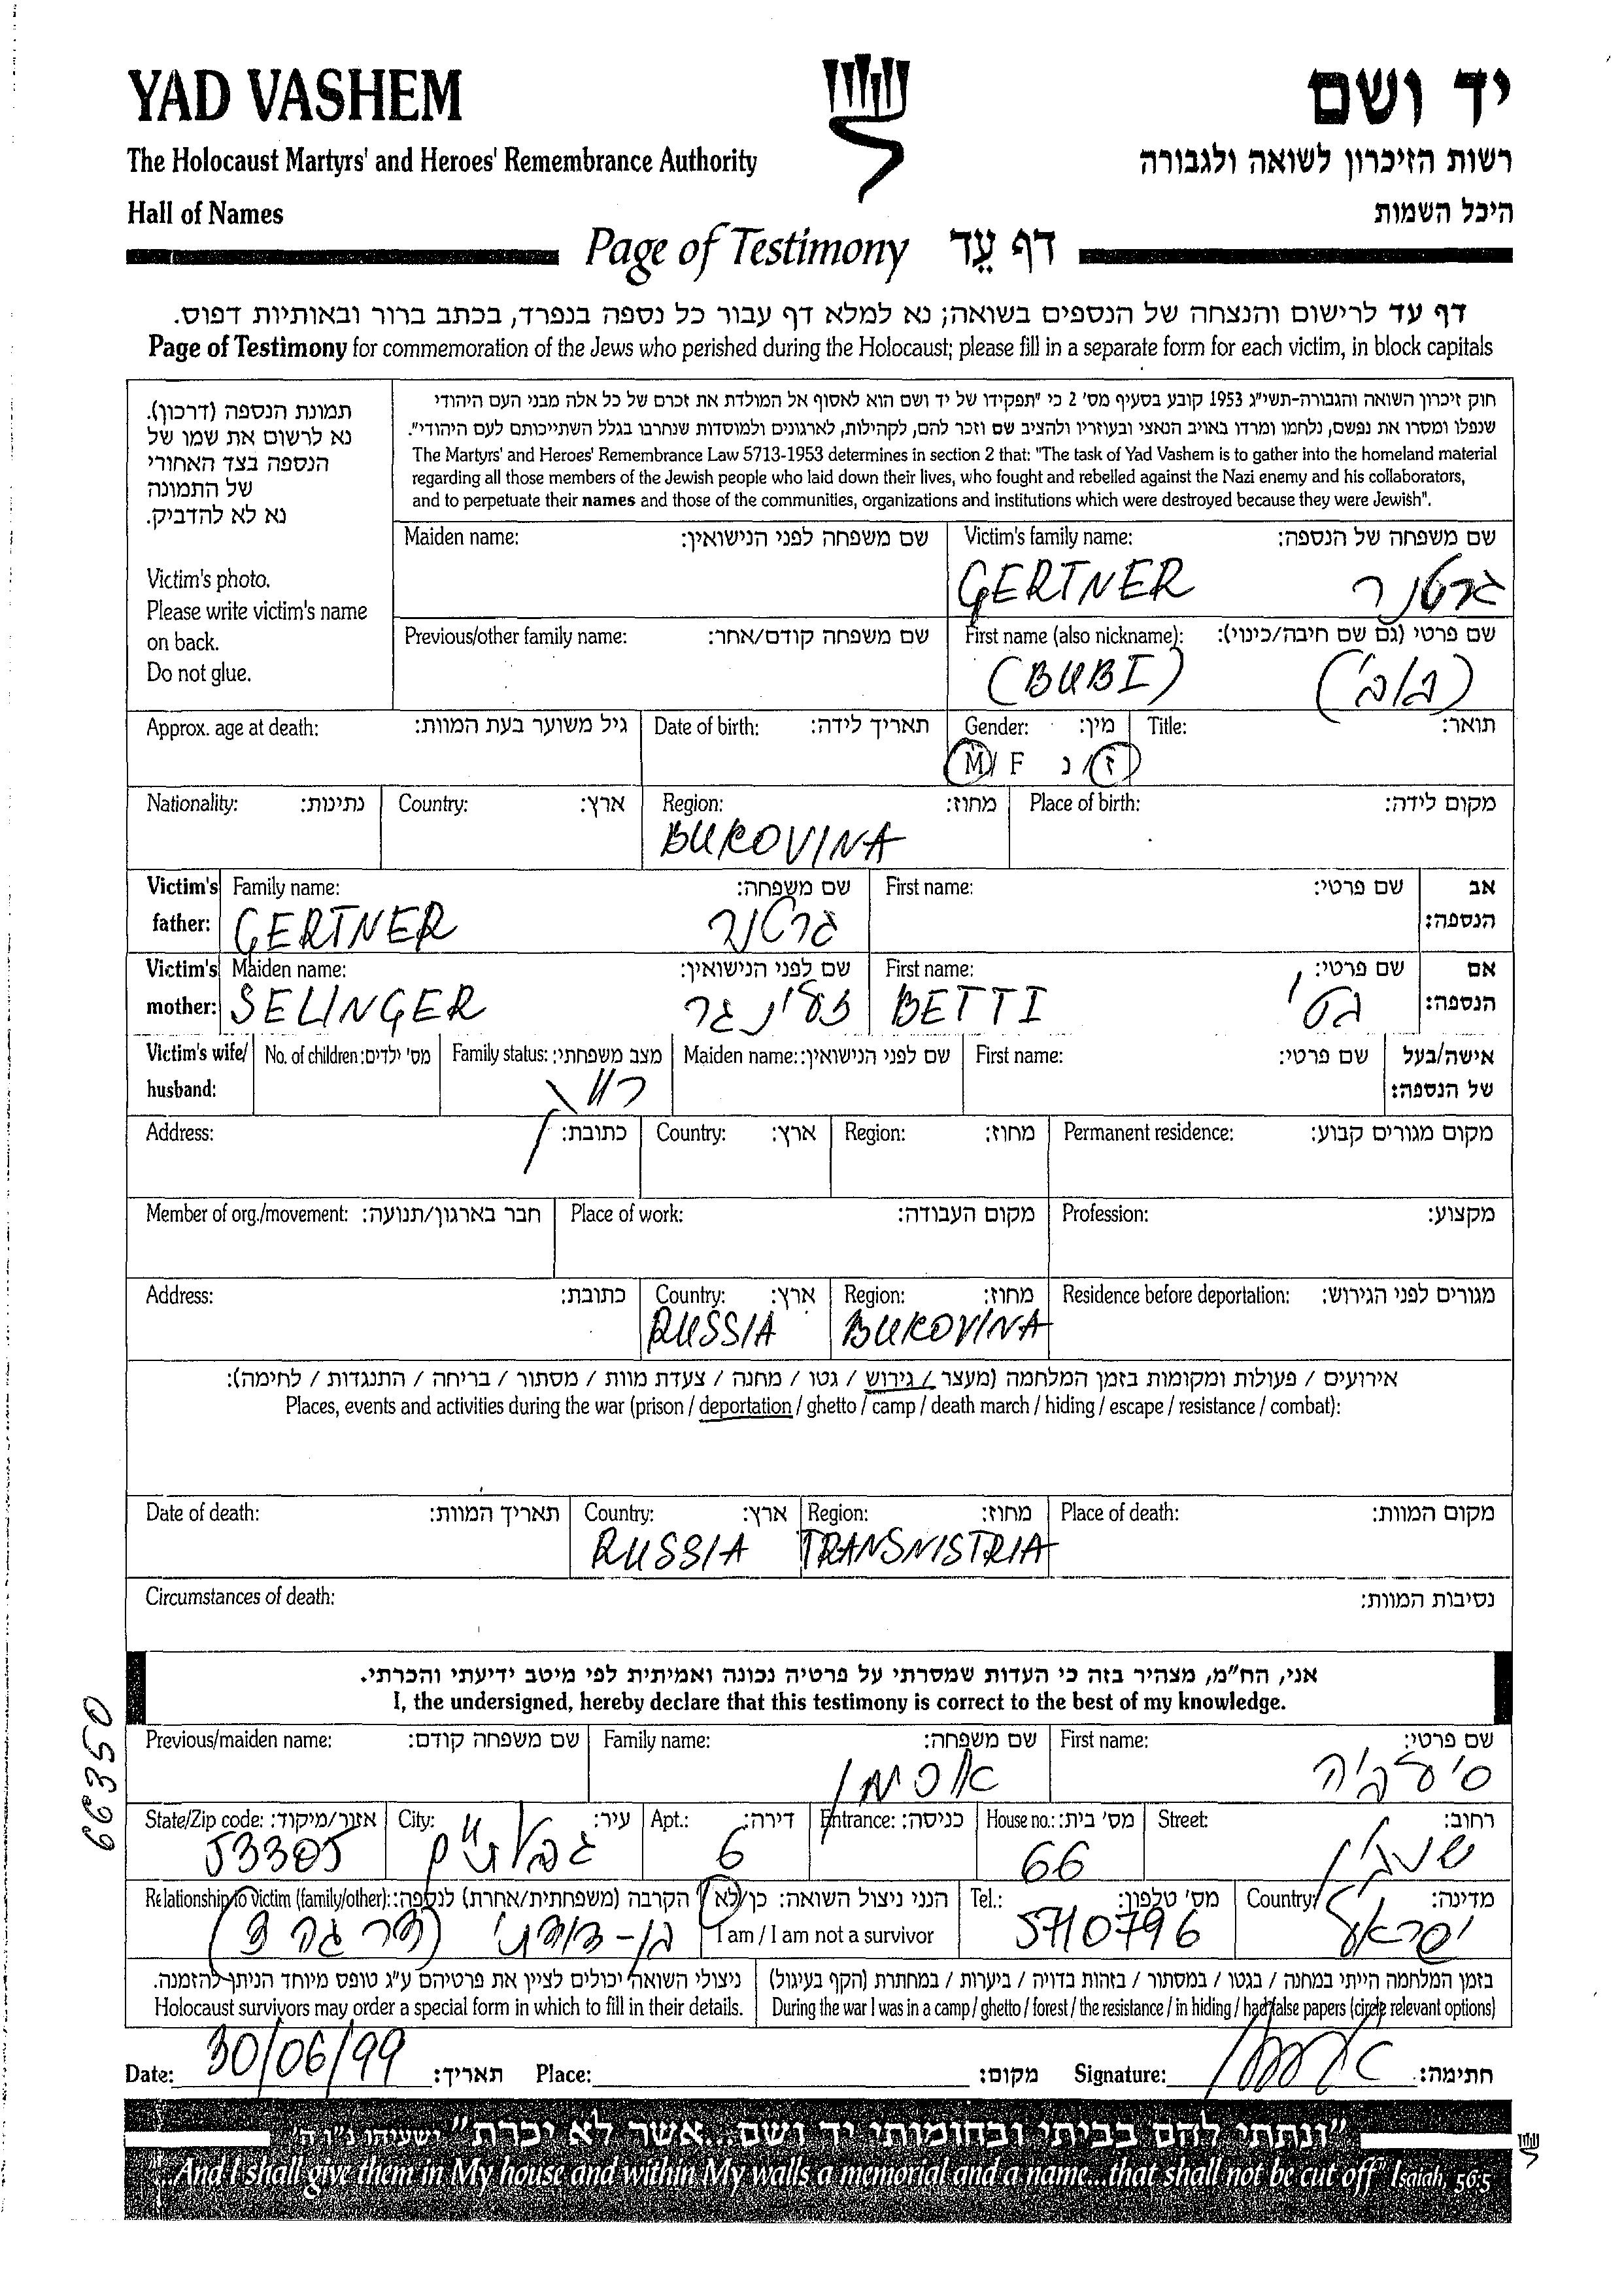 YAD VASHEM
יד ושם
The Holocaust Martyrs' and Heroes' Remembrance Authority
רשות הזיכרון לשואה ולגבורה
Hall of Names
היכל השמות
Page of Testimony דף עֵד
דף עד לרישום והנצחה של הנספים בשואה; נא למלא דף עבור כל נספה בנפרד, בכתב ברור ובאותיות דפוס.
Page of Testimony for commemoration of the Jews who perished during the Holocaust; please fill in a separate form for each victim, in block capitals
תמונת הנספה (דרכון).
נא לרשום את שמו של
הנספה בצד האחורי
של התמונה
נא לא להדביק.
Victim's photo.
Please write victim's name
on back.
Do not glue.
חוק זיכרון השואה והגבורה-תשי"ג 1953 קובע בסעיף מס' 2 כי "תפקידו של יד ושם הוא לאסוף אל המולדת את זכרם של כל אלה מבני העם היהודי
שנפלו ומסרו את נפשם, נלחמו ומרדו באויב הנאצי ובעוזריו ולהציב שם וזכר להם, לקהילות, לארגונים ולמוסדות שנחרבו בגלל השתייכותם לעם היהודי".
The Martyrs' and Heroes' Remembrance Law 5713-1953 determines in section 2 that: "The task of Yad Vashem is to gather into the homeland material
regarding all those members of the Jewish people who laid down their lives, who fought and rebelled against the Nazi enemy and his collaborators,
and to perpetuate their names and those of the communities, organizations and institutions which were destroyed because they were Jewish".
Maiden name: שם משפחה לפני הנישואין:
Victim's family name: שם משפחה של הנספה:
GERTNER גרטנר
Previous/other family name: שם משפחה קודם/אחר:
First name (also nickname): שם פרטי (גם שם חיבה/כינוי):
(BUBI) (בובי)
Approx. age at death: גיל משוער בעת המוות:
Date of birth: תאריך לידה:
Gender: מין:
M/F ז/נ
Title: תואר:
Nationality: נתינות:
Country: ארץ:
Region: מחוז:
BUKOVINA
Place of birth: מקום לידה:
Victim's father: Family name: שם משפחה:
GERTNER גרטנר
First name: שם פרטי:
אב הנספה:
Victim's mother: Maiden name: שם לפני הנישואין:
SELINGER זלינגר
First name: שם פרטי:
BETTI בטי
אם הנספה:
Victim's wife/ husband: No. of children: מס' ילדים:
Family status: מצב משפחתי:
רווק
Maiden name: שם לפני הנישואין:
First name: שם פרטי:
אישה/בעל של הנספה:
Address: כתובת:
Country: ארץ:
Region: מחוז:
Permanent residence: מקום מגורים קבוע:
Member of org./movement: חבר בארגון/תנועה:
Place of work: מקום העבודה:
Profession: מקצוע:
Address: כתובת:
Country: ארץ:
RUSSIA
Region: מחוז:
BUKOVINA
Residence before deportation: מגורים לפני הגירוש:
אירועים / פעולות ומקומות בזמן המלחמה (מעצר / גירוש / גטו / מחנה / צעדת מוות / מסתור / בריחה / התנגדות / לחימה):
Places, events and activities during the war (prison / deportation / ghetto / camp / death march / hiding / escape / resistance / combat):
Date of death: תאריך המוות:
Country: ארץ:
RUSSIA
Region: מחוז:
TRANSNISTRIA
Place of death: מקום המוות:
Circumstances of death: נסיבות המוות:
אני, הח"מ, מצהיר בזה כי העדות שמסרתי על פרטיה נכונה ואמיתית לפי מיטב ידיעתי והכרתי.
I, the undersigned, hereby declare that this testimony is correct to the best of my knowledge.
66350
Previous/maiden name: שם משפחה קודם:
Family name: שם משפחה:
First name: שם פרטי:
סילביה
State/Zip code: אזור/מיקוד:
53305
City: עיר:
גבעתיים
Apt.: דירה:
6
Entrance: כניסה:
House no.: מס' בית:
66
Street: רחוב:
Relationship to victim (family/other): הקרבה (משפחתית/אחרת) לנספה:
בן-דודתי
הנני ניצול השואה: כן/לא
I am / I am not a survivor
Tel.: מס' טלפון:
5710796
Country: מדינה:
ישראל
ניצולי השואה יכולים לציין את פרטיהם ע"ג טופס מיוחד הניתן להזמנה.
Holocaust survivors may order a special form in which to fill in their details.
בזמן המלחמה הייתי במחנה / בגטו / במסתור / בזהות בדויה / ביערות / במחתרת (הקף בעיגול)
During the war I was in a camp / ghetto / forest / the resistance / in hiding / had false papers (circle relevant options)
Date: 30/06/99 תאריך:
Place: מקום:
Signature: חתימה:
"ונתתי להם בביתי ובחומותי יד ושם...אשר לא יכרת" ישעיהו נ"ו ה'
"...And I shall give them in My house and within My walls a memorial and a name...that shall not be cut off" Isaiah, 56:5